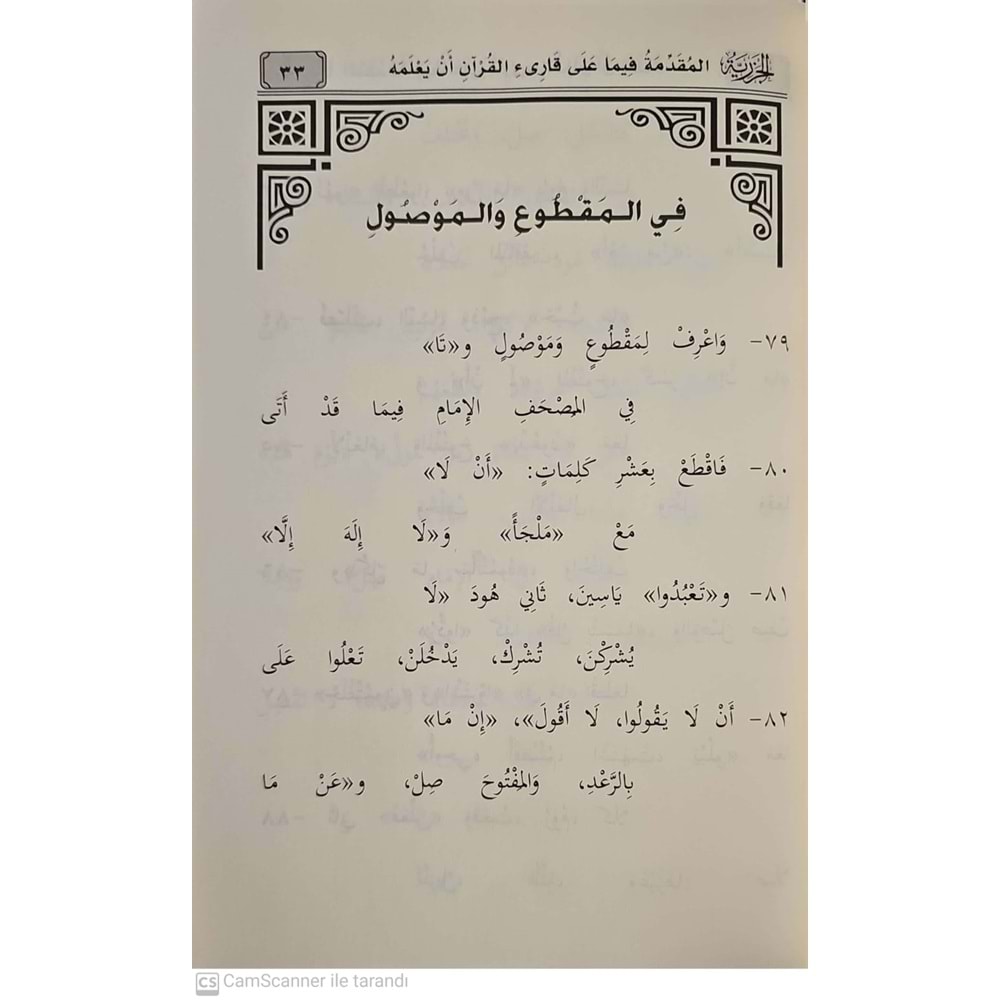 الجزرية المُقَدِّمَةُ فِيمَا عَلَى قَارِىءِ القُرْآنِ أَنْ يَعْلَمَهُ ٣٣
فِي الْمَقْطُوعِ وَالْمَوْصُولِ
٧٩- وَاعْرِفْ لِمَقْطُوعٍ وَمَوْصُولٍ و«تَا»
فِي المُصْحَفِ الإِمَامِ فِيمَا قَدْ أَتَى
٨٠- فَاقْطَعْ بِعَشْرِ كَلِمَاتٍ: «أَنْ لَا»
مَعْ «مَلْجَأً» وَ«لَا إِلَهَ إِلَّا»
٨١- و«تَعْبُدُوا» يَاسِينَ، ثَانِي هُودَ «لَا
يُشْرِكْنَ، تُشْرِكْ، يَدْخُلَنْ، تَعْلُوا عَلَى
٨٢- أَنْ لَا يَقُولُوا، لَا أَقُولَ»، «إِنْ مَا»
بِالرَّعْدِ، وَالمَفْتُوحَ صِلْ، و«عَنْ مَا
CS CamScanner ile tarandı